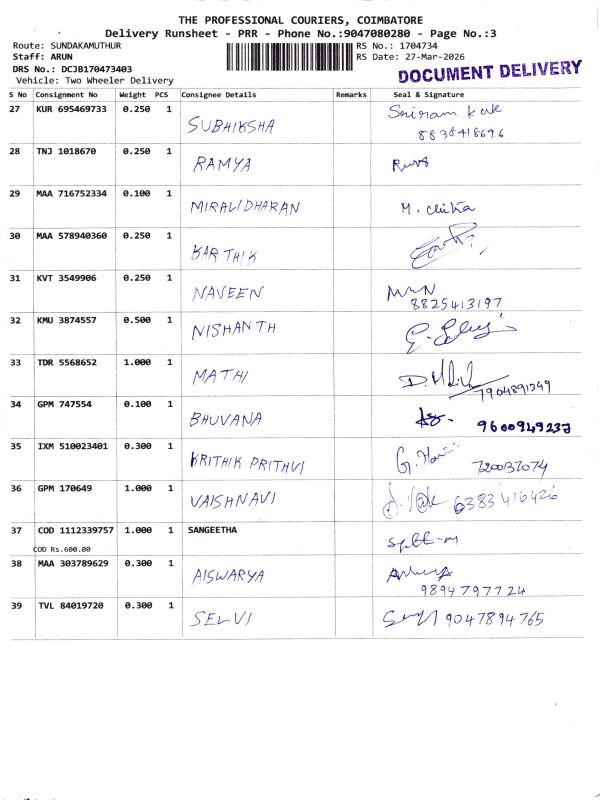 THE PROFESSIONAL COURIERS, COIMBATORE
Delivery Runsheet - PRR - Phone No.:9047080280 - Page No.:3
Route: SUNDAKAMUTHUR
RS No.: 1704734
Staff: ARUN
RS Date: 27-Mar-2026
DRS No.: DCJB170473403
Vehicle: Two Wheeler Delivery
DOCUMENT DELIVERY
S No Consignment No Weight PCS Consignee Details Remarks Seal & Signature
27 KUR 695469733 0.250 1 SUBHIKSHA Sriram
8838418696
28 TNJ 1018670 0.250 1 RAMYA
29 MAA 716752334 0.100 1 MIRALIDHARAN M. Chitra
30 MAA 578940360 0.250 1 KARTHIK
31 KVT 3549906 0.250 1 NAVEEN
8825413197
32 KMU 3874557 0.500 1 NISHANTH
33 TDR 5568652 1.000 1 MATHI
7904891349
34 GPM 747554 0.100 1 BHUVANA 9600949237
35 IXM 510023401 0.300 1 KRITHIK PRITHVI
36 GPM 170649 1.000 1 VAISHNAVI 6383416426
37 COD 1112339757 1.000 1 SANGEETHA
COD Rs.600.00
38 MAA 303789629 0.300 1 AISWARYA
9894797724
39 TVL 84019720 0.300 1 SELVI 9047894765